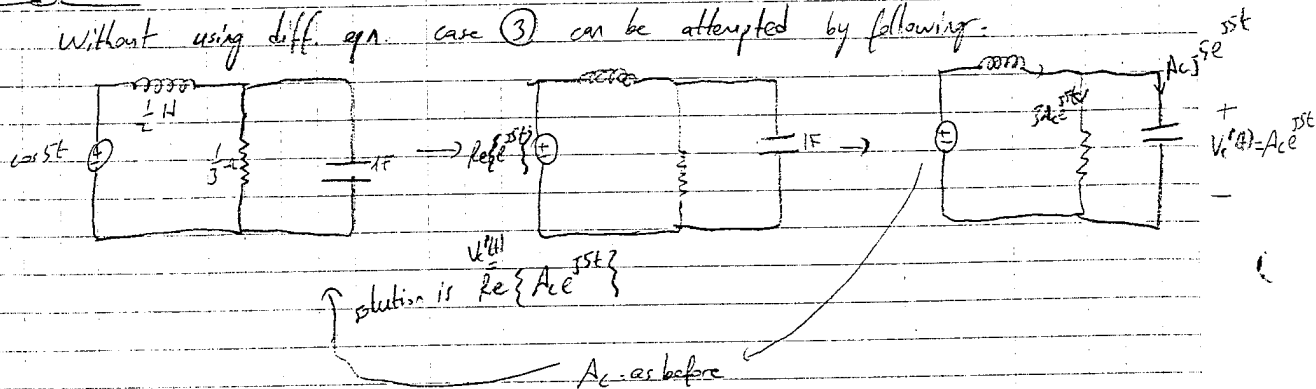 Without using diff. eqn. case ③ can be attempted by following.
cos 5t
½ H
⅓ Ω
1F
→ Re{e^{j5t}}
1F →
3A_c e^{j5t}
A_c j5e^{j5t}
+
V_c^p(t) = A_c e^{j5t}
-
solution is V_c^p(t) = Re{A_c e^{j5t}}
A_c - as before